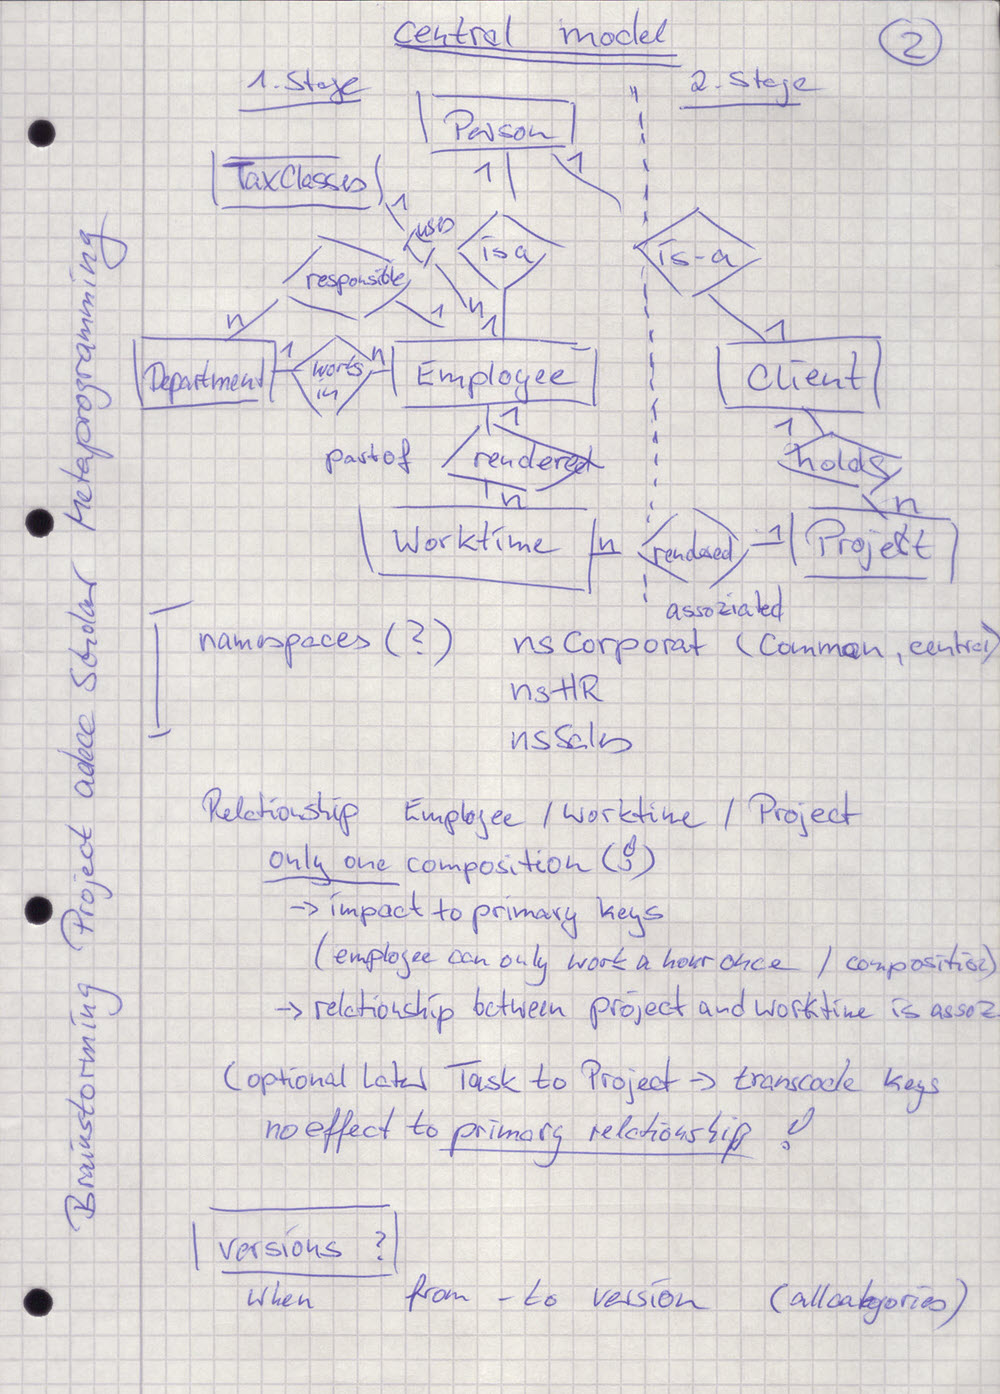 central model
2
1. Stage
2. Stage
Person
TaxClasses
1
1
1
uses
is a
is-a
responsible
n
1
n
1
1
Department
1
works
in
n
Employee
Client
1
1
part of
rendered
holds
n
n
Worktime
n
rendered
1
Projekt
assoziated
namespaces (?)
nsCorporat (Common, central)
nsHR
nsSales
Relationship Employee / Worktime / Project
only one composition (!)
-> impact to primary keys
(employee can only work a hour once / composition)
-> relationship between project and worktime is assoz.
(optional later Task to Project -> transcode keys
no effect to primary relationship !
versions ?
when from - to version (all categories)
Brainstorming Project Metaprogramming